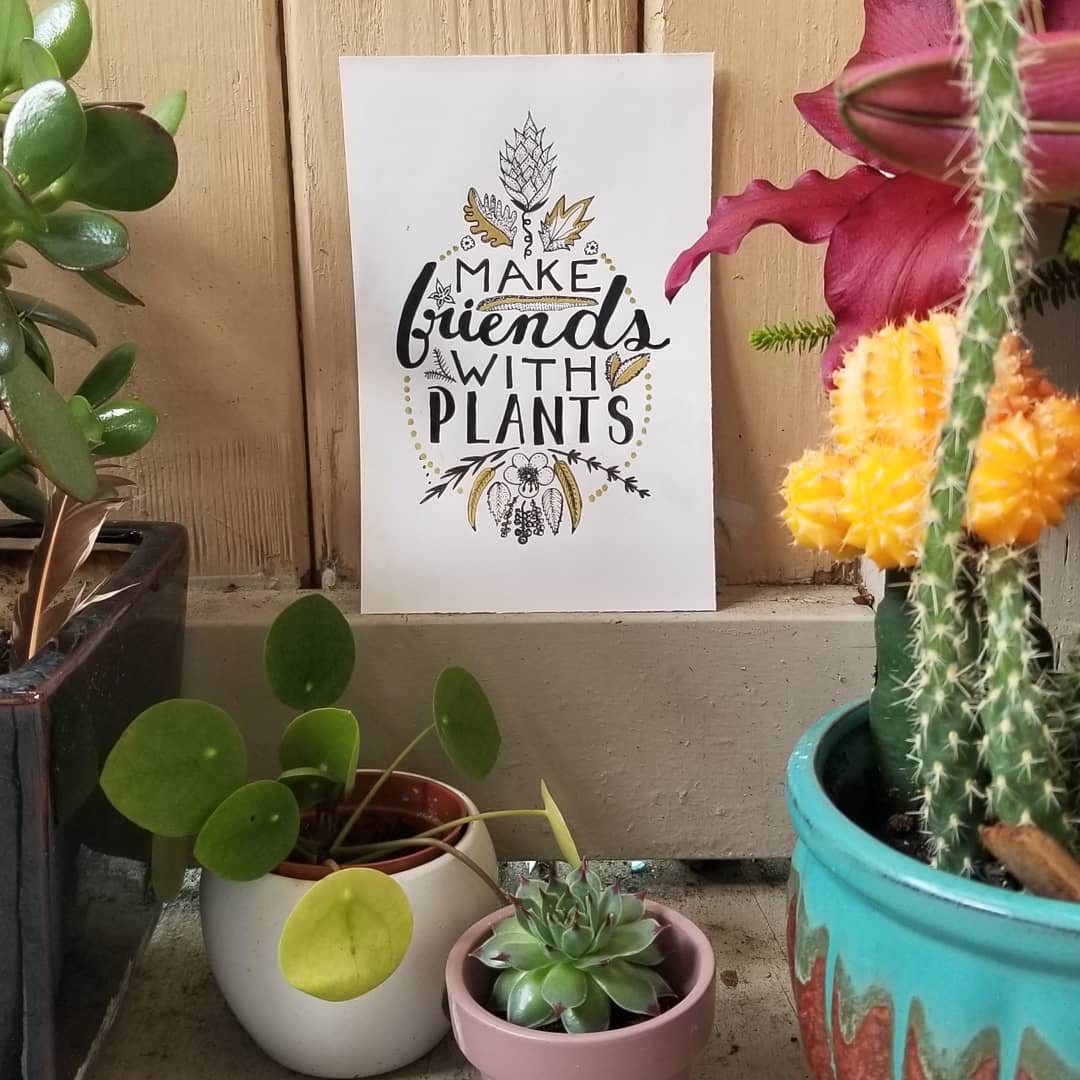 MAKE
friends
WITH
PLANTS